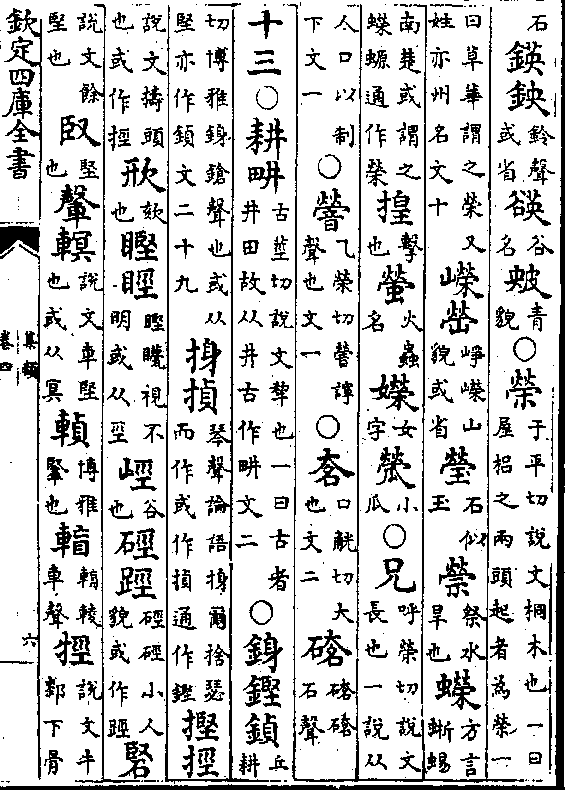 石鍈鉠鈴聲或省谷名青貌○榮于平切說文桐木也一曰屋梠之兩頭起者為榮一
曰草華謂之榮又姓亦州名文十嶸㟐崢嶸山貌或省瑩石似玉禜祭水旱也蠑方言蜥蜴
南楚或謂之蠑螈通作榮揘擊也螢火蟲名嬫女字㼆小瓜○兄呼榮切說文長也一說从
人口以制下文一○謍乙榮切謍諄聲也文一○口觥切大也文二石聲
十三○耕畊古莖切說文犂也一曰古者井田故从井古作畊文二○銵鏗鍞丘耕
切博雅銵鎗聲也或从堅亦作鍞文二十九揁琴聲論語爾捨瑟而作或作揁通作鏗摼挳
說文擣頭也或作挳欬也視不明或从巠谷也硜踁硜硜小人貌或作踁硻
說文餘堅也臤堅也說文車堅也或从冥博雅堅也輷輘車聲牼說文牛郄下骨
欽定四庫全書
集韻
卷四
六